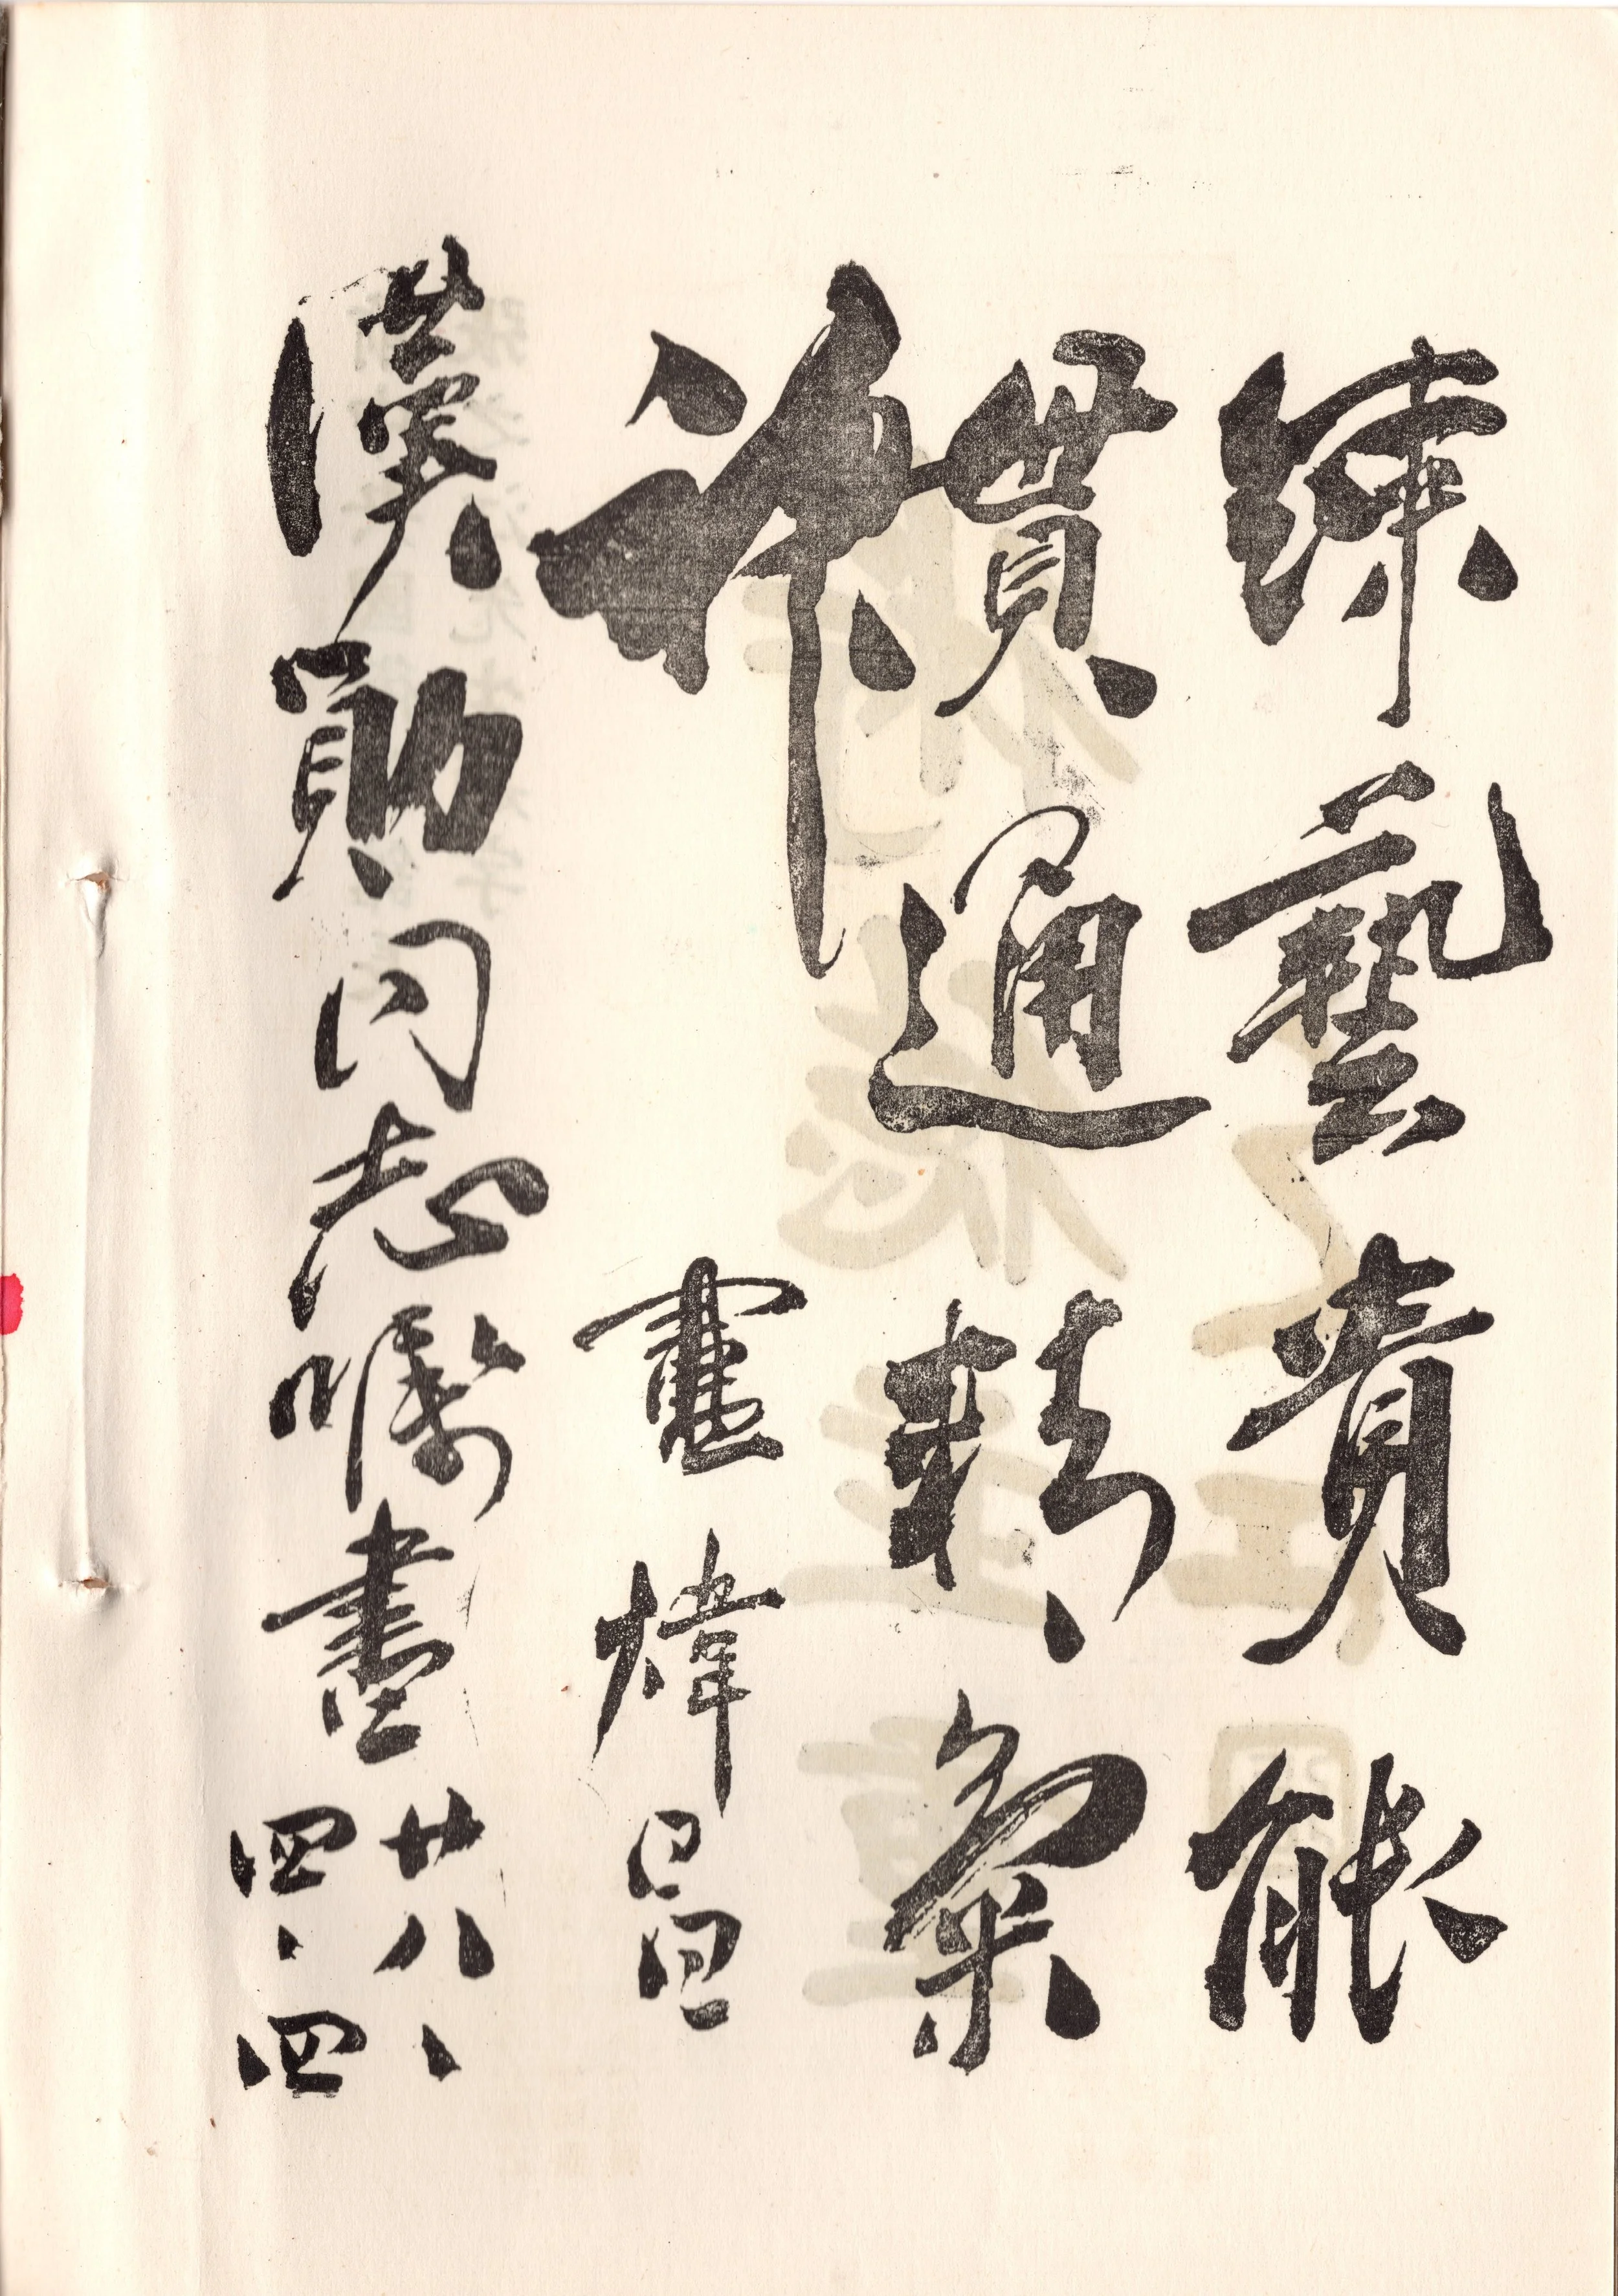 練藝貴能
貫通精氣
神
盧煒昌
漢勛同志囑書
廿八、
四、四